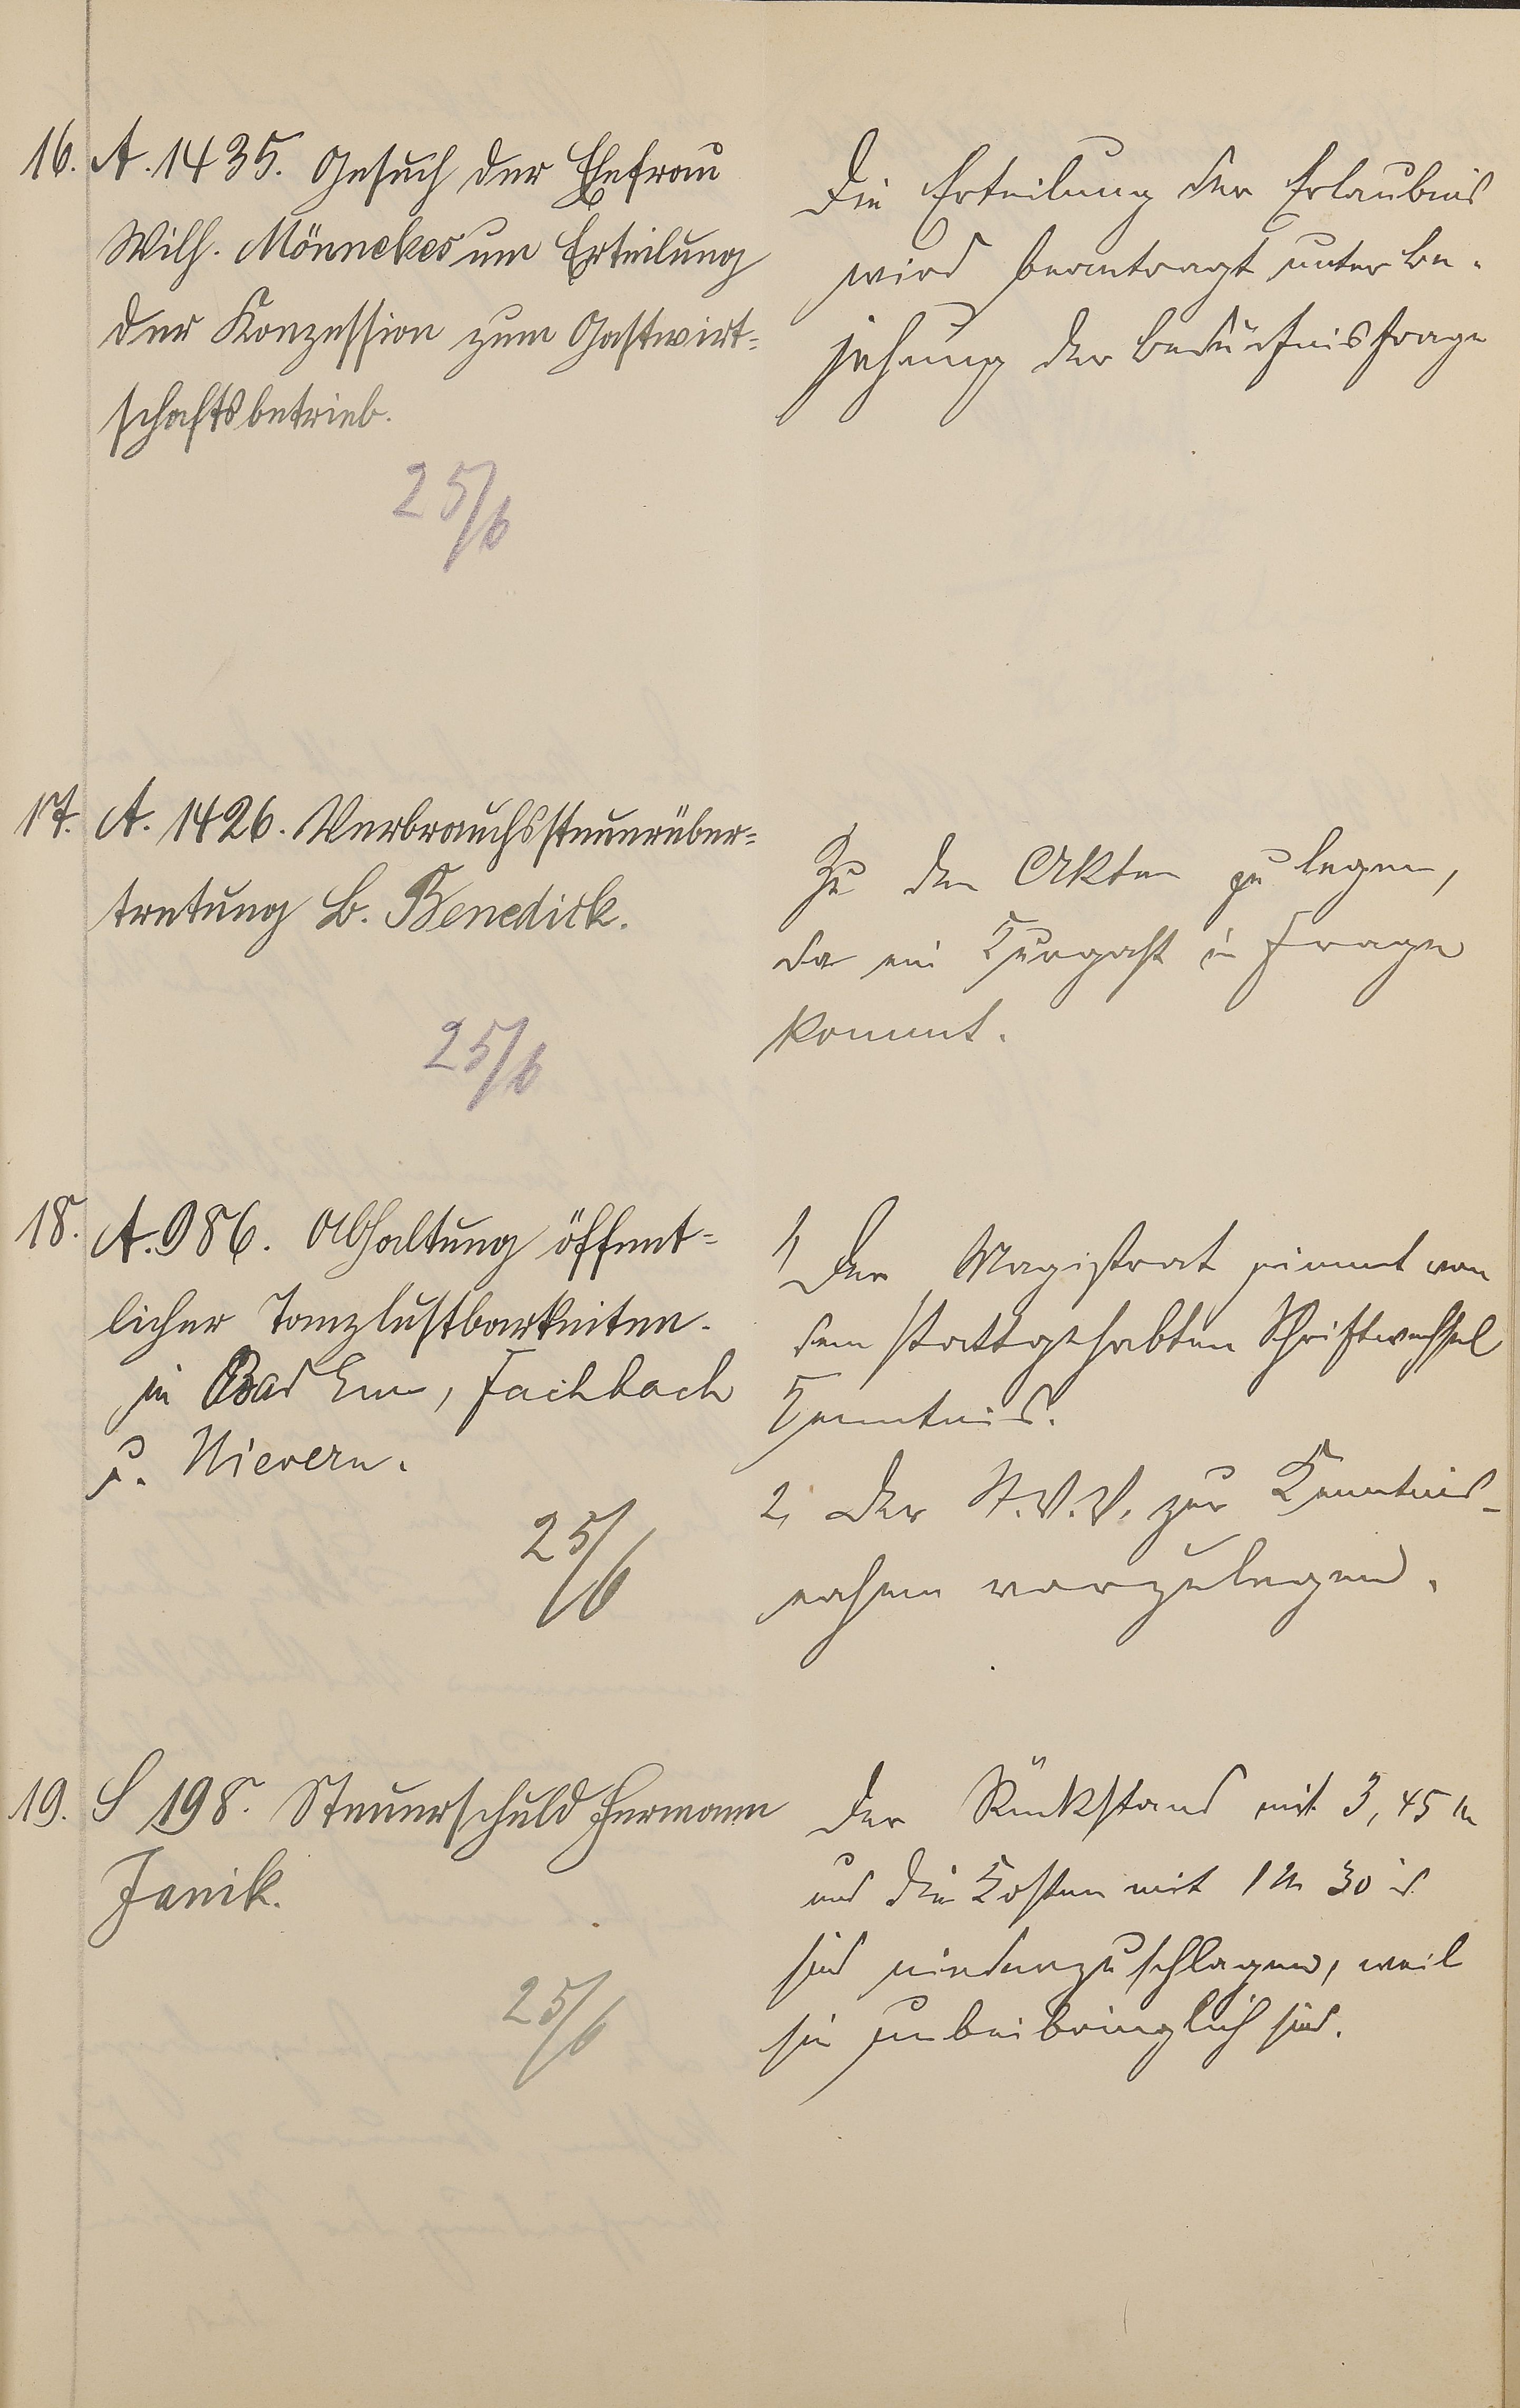 16. A. 1435. Gesuch der Ehefrau
Wilh. Mönnekes um Erteilung
der Konzession zum Gastwirt=
schaftsbetrieb.
25/6
Die Erteilung der Erlaubnis
wird beantragt unter Be-
jahung der Bedürfnisfrage
17. A. 1426. Verbrauchssteuerüber=
tretung B. Benedick.
25/6
Zu den Akten zu legen,
da ein Kurgast in Frage
kommt.
18. A. 986. Abhaltung öffent=
licher Tanzlustbarkeiten.
in Bad Ems, Fachbach
u. Nievern.
25/6
1, Der Magistrat nimmt von
dem stattgehabten Schriftwechsel
Kenntnis.
2, Der St. V. V. zur Kenntnis-
nahme vorzulegen.
19. S 198. Steuerschuld Hermann
Janik.
25/6
Der Rückstand mit 3,45 M
und die Kosten mit 1 M 30 d
sind niederzuschlagen, weil
sie unbeibringlich sind.